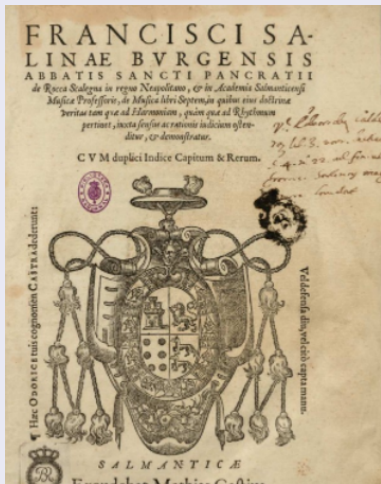 FRANCISCI SA-
LINAE BVRGENSIS
ABBATIS SANCTI PANCRATII
de Rocca Scalegna in regno Neapolitano, & in Academia Salmanticensi
Musicæ Professoris, de Musica libri Septem, in quibus eius doctrinæ
veritas tam quæ ad Harmoniam, quàm quæ ad Rhythmum
pertinet, iuxta sensus ac rationis iudicium osten-
ditur, & demonstratur.
CVM duplici Indice Capitum & Rerum.
¶ Hæc ODORICE tuis cognomen CASTRA dederunt:
Vel defensa diu, vel citò capta manu.
SALMANTICÆ
Mathias Gastius